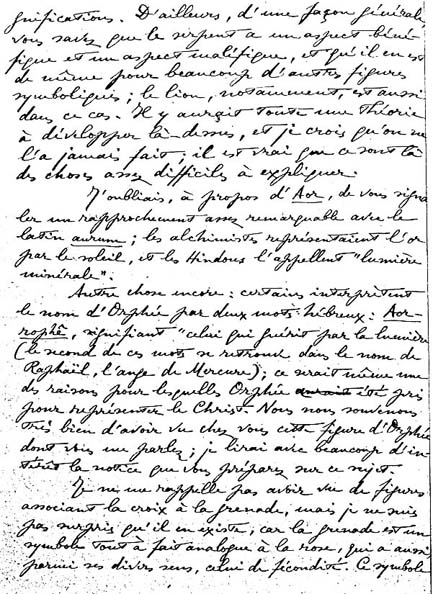 gnifications. D'ailleurs, d'une façon générale,
vous savez que le serpent a un aspect béné-
fique et un aspect maléfique, et qu'il en est
de même pour beaucoup d'autres figures
symboliques ; le lion, notamment, est aussi
dans ce cas. Il y aurait toute une théorie
à développer là-dessus, et je crois qu'on ne
l'a jamais fait ; il est vrai que ce sont là
des choses assez difficiles à expliquer.
J'oubliais, à propos d'Aor, de vous signa-
ler un rapprochement assez remarquable avec le
latin aurum ; les alchimistes représentaient l'or
par le soleil, et les Hindous l'appellent "lumière
minérale".
Autre chose encore : certains interprètent
le nom d'Orphée par deux mots hébreux : Aor-
rophê, signifiant "celui qui guérit par la lumière"
(le second de ces mots se retrouve dans le nom de
Raphaël, l'ange de Mercure) ; ce serait même une
des raisons pour lesquelles Orphée aurait été pris
pour représenter le Christ. Nous nous souvenons
très bien d'avoir vu chez vous cette figure d'Orphée
dont vous me parlez ; je lirai avec beaucoup d'in-
térêt la notice que vous préparez sur ce sujet.
Je ne me rappelle pas avoir vu de figures
associant la croix à la grenade, mais je ne suis
pas surpris qu'il en existe, car la grenade est un
symbole tout à fait analogue à la rose, qui a aussi
parmi ses divers sens, celui de fécondité. Ce symbole